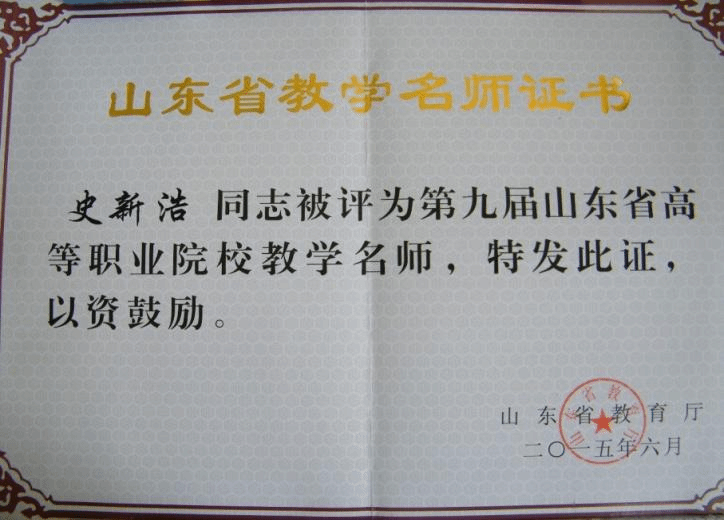 山东省教学名师证书
史新浩 同志被评为第九届山东省高
等职业院校教学名师，特发此证，
以资鼓励。
山东省教育厅
山东省教育厅
二〇一五年六月